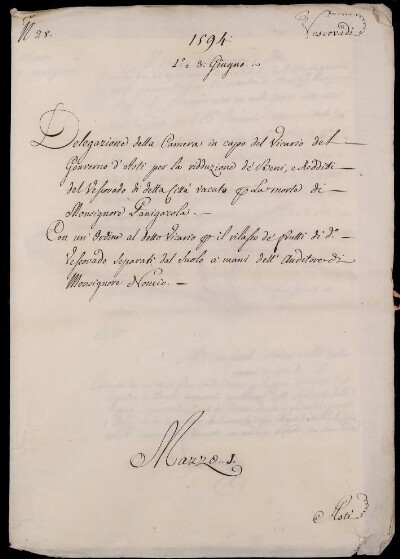 N. 28.
Vescovadi
1594.
1.° e 3. Giugno.
Delegazione della Camera in capo del Vicario del
Governo d'Asti per la ridduzione de' Beni, e Redditi
del Vescovado di detta Città vacato p la morte di
Monsignore Panigarola.
Con un' Ordine al detto Vicario p il rilasso de' frutti di d.°
Vescovado separati dal Suolo a' mani dell' Auditore di
Monsignore Noncio.
Mazzo 1.
Asti